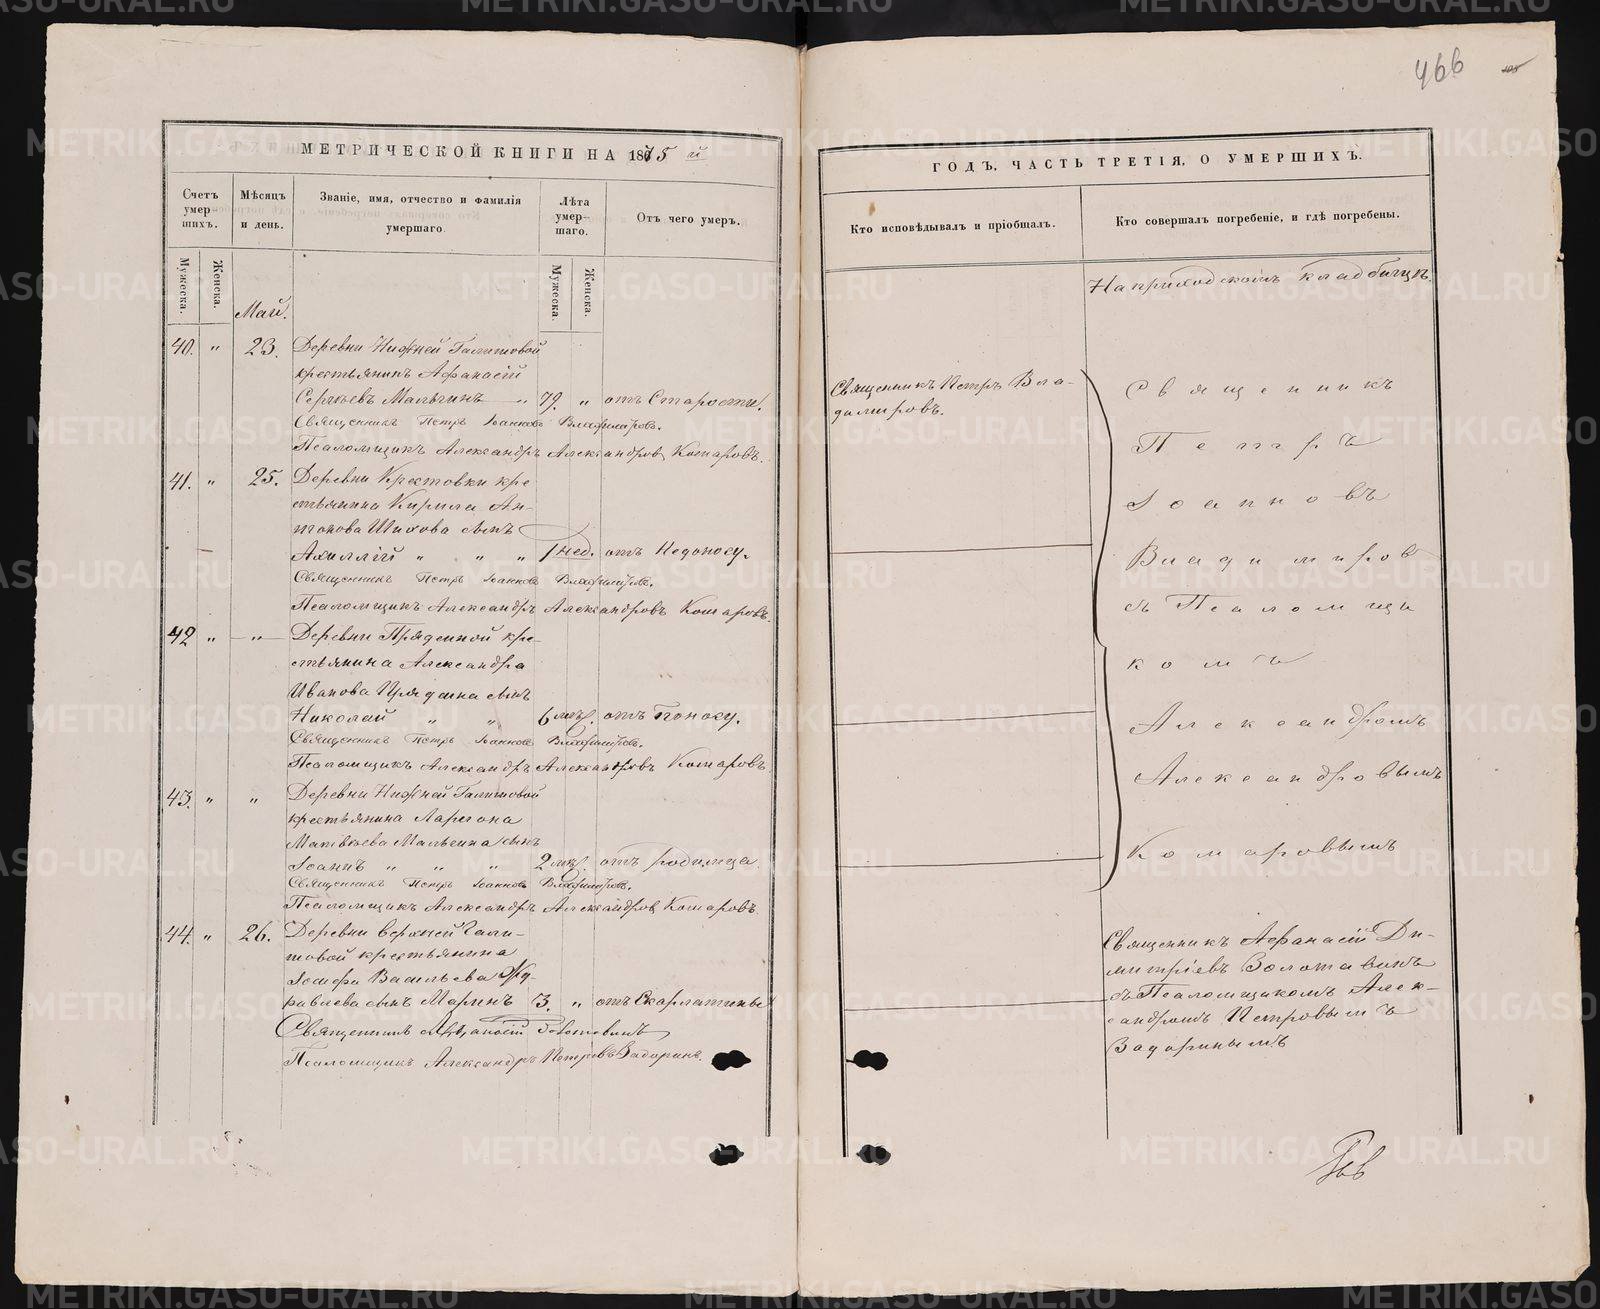 466
МЕТРИЧЕСКОЙ КНИГИ НА 1875 й
Счетъ умер-шихъ.
Мѣсяцъ и день.
Званіе, имя, отчество и фамилія умершаго.
Лѣта умер-шаго.
Отъ чего умеръ.
Мужеска.
Женска.
Мужеска.
Женска.
Май.
40. " 23. Деревни Нижней Галишовой
крестьянинъ Афанасій
Сергѣевъ Мальгинъ " 79. " отъ Старости.
Священникъ Петръ Іоанновъ Владимiровъ.
Псаломщикъ Александръ Александровъ Комаровъ.
41. " 25. Деревни Крестовки кре
стьянина Кирила Ан-
тонова Шихова сынъ
Ахиллій " " " 1 нед. отъ Недоносу.
Священникъ Петръ Іоанновъ Владимiровъ.
Псаломщикъ Александръ Александровъ Комаровъ.
42 " — " — Деревни Пряденной кре-
стьянина Александра
Иванова Прядеина сынъ
Николай " " 6 мѣс. отъ Поносу.
Священникъ Петръ Іоанновъ Владимiровъ.
Псаломщикъ Александръ Александровъ Комаровъ
43. " " Деревни Нижней Галишовой
крестьянина Ларiона
Матвѣева Мальгина сынъ
Іоаннъ " " " 2 мѣс. отъ родимца
Священникъ Петръ Іоанновъ Владимiровъ.
Псаломщикъ Александръ Александровъ Комаровъ.
44. " 26. Деревни верхней Гали-
шовой крестьянина
Іосифа Васильева Жу-
равлева сынъ Маринъ 3. " отъ Скарлатины
Священникъ Афанасій Золотавинъ
Псаломщикъ Александръ Петровъ Задоринъ.
ГОДЪ, ЧАСТЬ ТРЕТІЯ, О УМЕРШИХЪ.
Кто исповѣдывалъ и пріобщалъ.
Кто совершалъ погребеніе, и гдѣ погребены.
На приходскомъ кладбищѣ.
Священникъ Петръ Вла-
димiровъ.
Священникъ
Петръ
Іоанновъ
Владимiров
съ Псаломщи
комъ
Александромъ
Александровымъ
Комаровымъ
Священникъ Афанасій Ди-
митріевъ Золотавинъ
съ Псаломщикомъ Алек-
сандромъ Петровымъ
Задоринымъ
METRIKI.GASO-URAL.RU